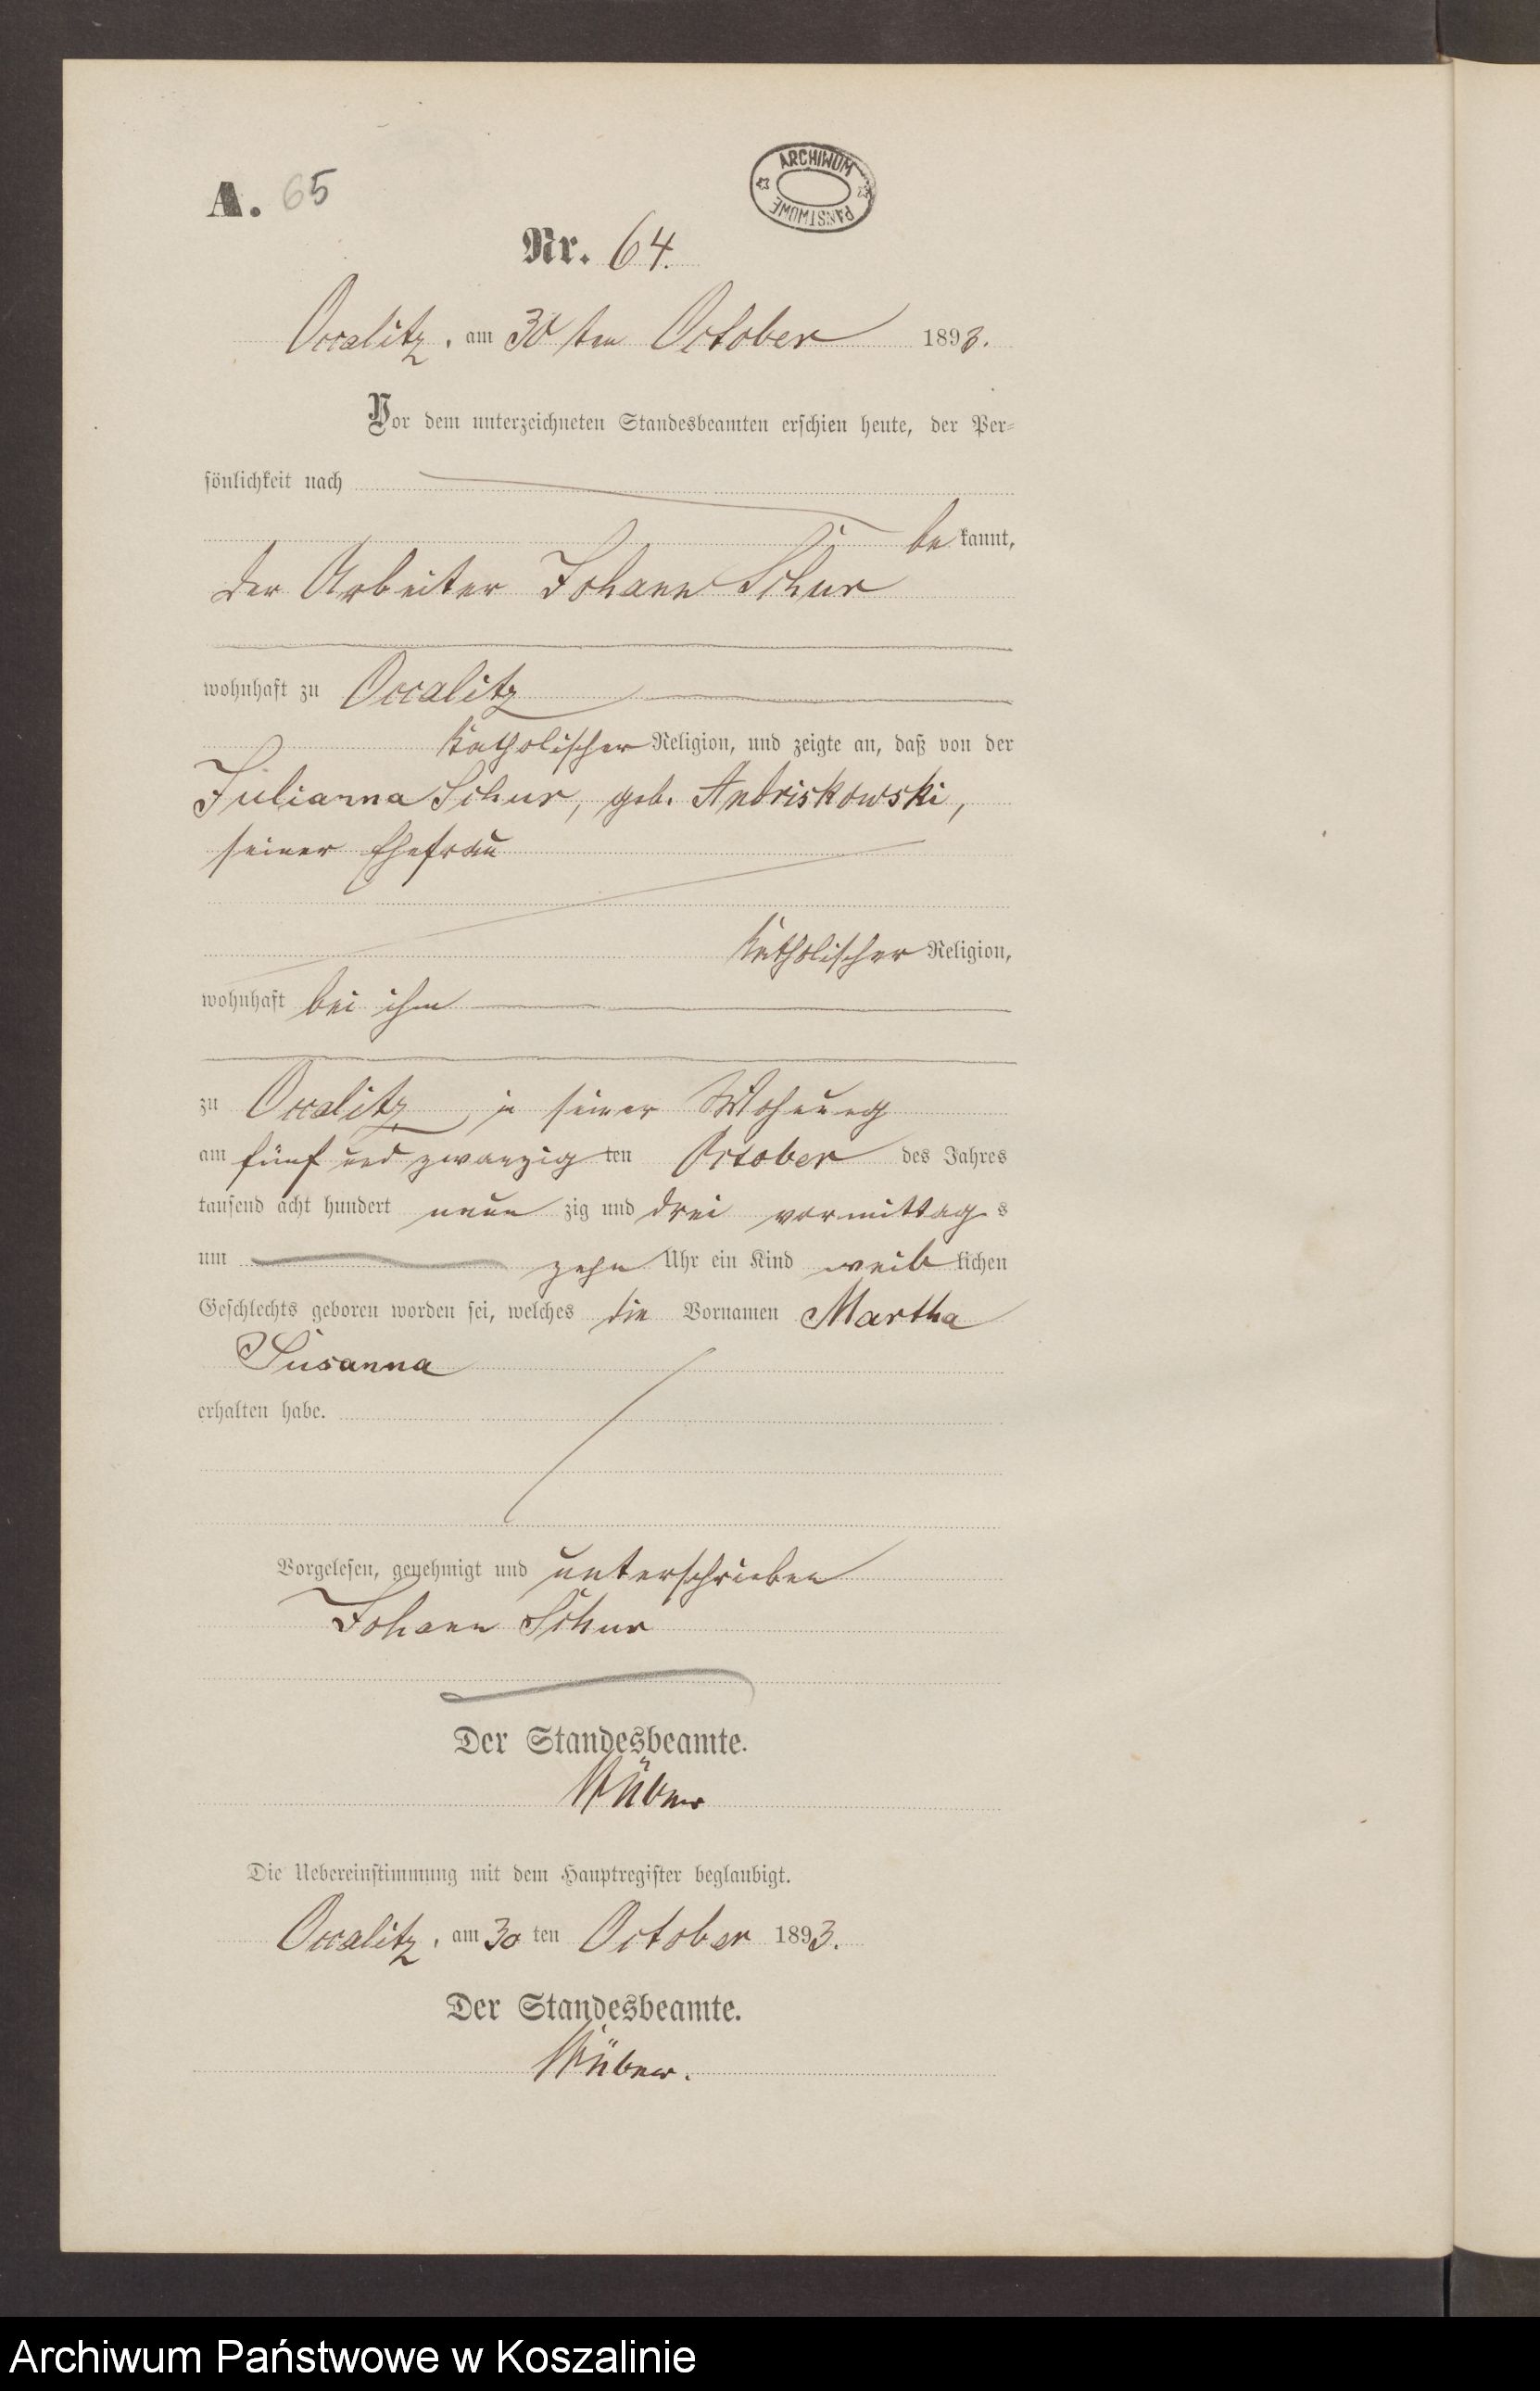 A. 65
ARCHIWUM PAŃSTWOWE
Nr. 64.
Occalitz, am 30 ten October 1893.
Vor dem unterzeichneten Standesbeamten erschien heute, der Per-
sönlichkeit nach
bekannt,
der Arbeiter Johann Schur
wohnhaft zu Occalitz
katholischer Religion, und zeigte an, daß von der
Julianna Schur, geb. Andriskowski,
seiner Ehefrau
katholischer Religion,
wohnhaft bei ihm
zu Occalitz, in seiner Wohnung
am fünf und zwanzig ten October des Jahres
tausend acht hundert neun zig und drei vormittags
um zehn Uhr ein Kind weiblichen
Geschlechts geboren worden sei, welches die Vornamen Martha
Susanna
erhalten habe.
Vorgelesen, genehmigt und unterschrieben
Johann Schur
Der Standesbeamte.
Die Uebereinstimmung mit dem Hauptregister beglaubigt.
Occalitz, am 30 ten October 1893.
Der Standesbeamte.
Archiwum Państwowe w Koszalinie